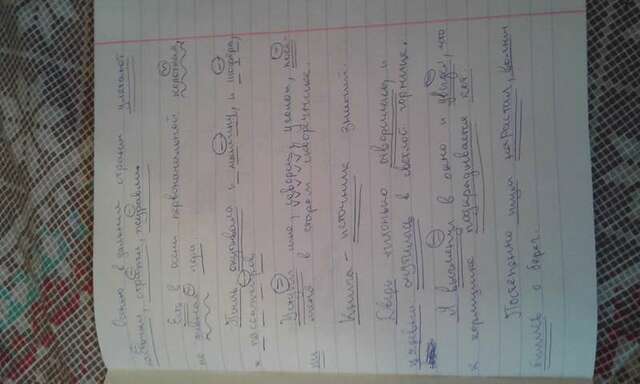 Осенью в дальние страны улетают
ласточки, стрижи, журавли.
Есть в осени первоначальной короткая,
но дивная пора
Пыль окутывала и машину, и шофёра,
и пассажиров
Уступи мне, скворец, уголок, посе-
ли меня в старом скворечнике.
Книга – источник знаний.
Дверь тихонько отворилась, и
царевна очутилась в светлой горнице.
Я выглянул в окно и увидел, что
к кормушке подкрадывается кот.
Постепенно шум нарастал, волны
бились о берег.